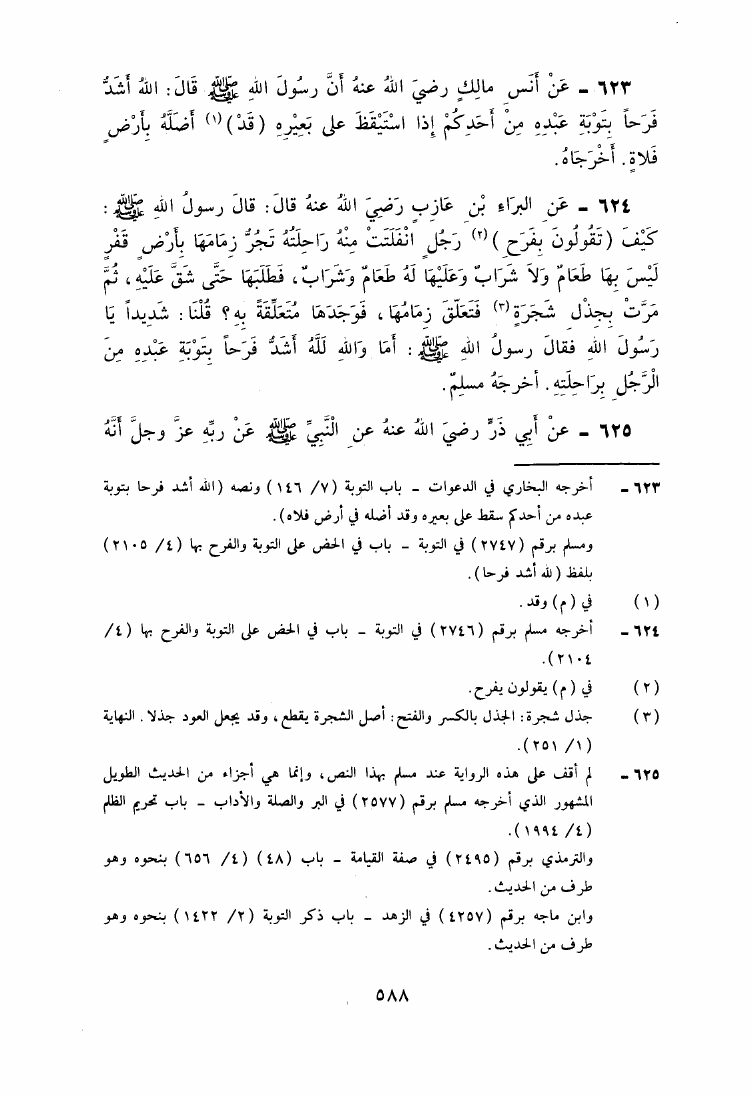 ٦٢٣ - عَنْ أَنَسِ مالِكٍ رضيَ اللهُ عنهُ أنَّ رسُولَ اللهِ ﷺ قَالَ: اللهُ أشَدُّ
فَرَحاً بِتَوْبَةِ عَبْدِهِ مِنْ أَحَدِكُمْ إِذا اسْتَيْقَظَ على بَعِيْرِهِ (قَدْ)(١) أضَلَّهُ بِأَرْضٍ
فَلاةٍ. أَخْرَجَاهُ.
٦٢٤ - عَنِ البَرَاءِ بْنِ عَازِبٍ رَضِيَ اللهُ عنهُ قالَ: قالَ رسولُ اللهِ ﷺ:
كَيْفَ (تَقُولُونَ بِفَرَحِ)(٢) رَجُلٍ انْفَلَتَتْ مِنْهُ رَاحِلَتُهُ تَجُرُّ زِمَامَهَا بِأَرْضٍ قَفْرٍ
لَيْسَ بِهَا طَعَامٌ وَلاَ شَرَابٌ وَعَلَيْهَا لَهُ طَعَامٌ وَشَرَابٌ، فَطَلَبَهَا حَتَّى شَقَّ عَلَيْهِ، ثُمَّ
مَرَّتْ بِجِذْلِ شَجَرَةٍ(٣) فَتَعلَّقَ زِمَامُهَا، فَوَجَدَهَا مُتَعلِّقَةً بِهِ؟ قُلْنَا: شَدِيداً يَا
رَسُولَ اللهِ فقالَ رسولُ اللهِ ﷺ: أمَا وَاللهِ لَلَّهُ أَشَدُّ فَرَحاً بِتَوْبَةِ عَبْدِهِ مِنَ
الْرَّجُلِ بِرَاحِلَتِهِ. أخرجَهُ مسلِمٌ.
٦٢٥ - عنْ أَبِي ذَرٍّ رضيَ اللهُ عنهُ عنِ الْنَّبِيِّ ﷺ عَنْ ربِّهِ عزَّ وجلَّ أَنَّهُ
٦٢٣ - أخرجه البخاري في الدعوات - باب التوبة (٧/ ١٤٦) ونصه (الله أشد فرحا بتوبة
عبده من أحدكم سقط على بعيره وقد أضله في أرض فلاه).
ومسلم برقم (٢٧٤٧) في التوبة - باب في الحض على التوبة والفرح بها (٤/ ٢١٠٥)
بلفظ (لله أشد فرحا).
(١) في (م) وقد.
٦٢٤ - أخرجه مسلم برقم (٢٧٤٦) في التوبة - باب في الحض على التوبة والفرح بها (٤/
٢١٠٤).
(٢) في (م) يقولون يفرح.
(٣) جذل شجرة: الجذل بالكسر والفتح: أصل الشجرة يقطع، وقد يجعل العود جذلا. النهاية
(١/ ٢٥١).
٦٢٥ - لم أقف على هذه الرواية عند مسلم بهذا النص، وإنما هي أجزاء من الحديث الطويل
المشهور الذي أخرجه مسلم برقم (٢٥٧٧) في البر والصلة والأداب - باب تحريم الظلم
(٤/ ١٩٩٤).
والترمذي برقم (٢٤٩٥) في صفة القيامة - باب (٤٨) (٤/ ٦٥٦) بنحوه وهو
طرف من الحديث.
وابن ماجه برقم (٤٢٥٧) في الزهد - باب ذكر التوبة (٢/ ١٤٢٢) بنحوه وهو
طرف من الحديث.
٥٨٨